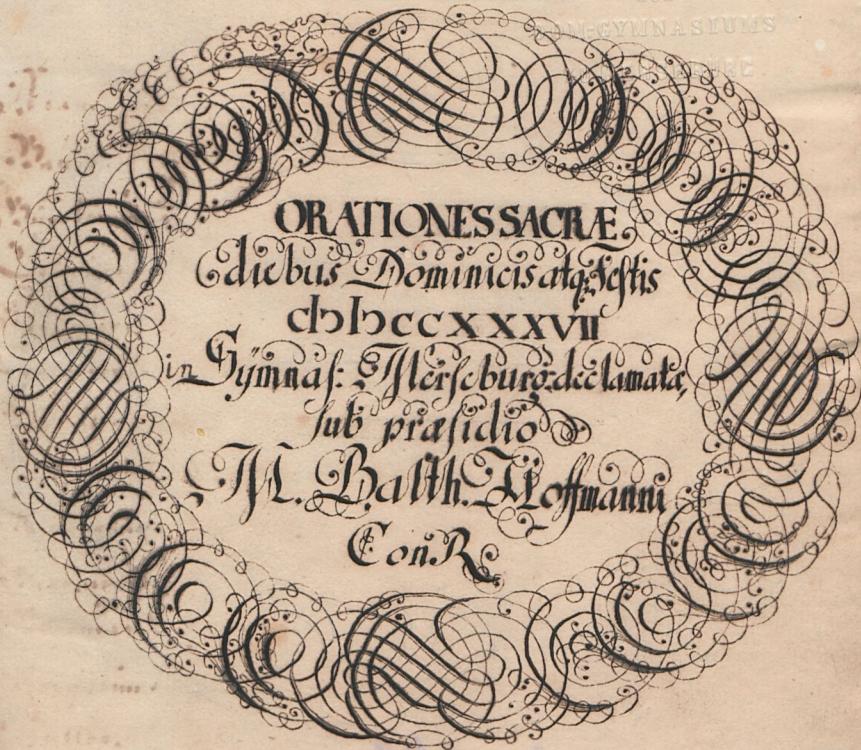 DOM-GYMNASIUMS
ORATIONES SACRÆ
diebus Dominicis atq; Festis
cIↄ Iↄ CCXXXVII
in Gymnas: Merseburg: declamatæ,
sub præsidio
M. Balth. Hoffmanni
Con.R.